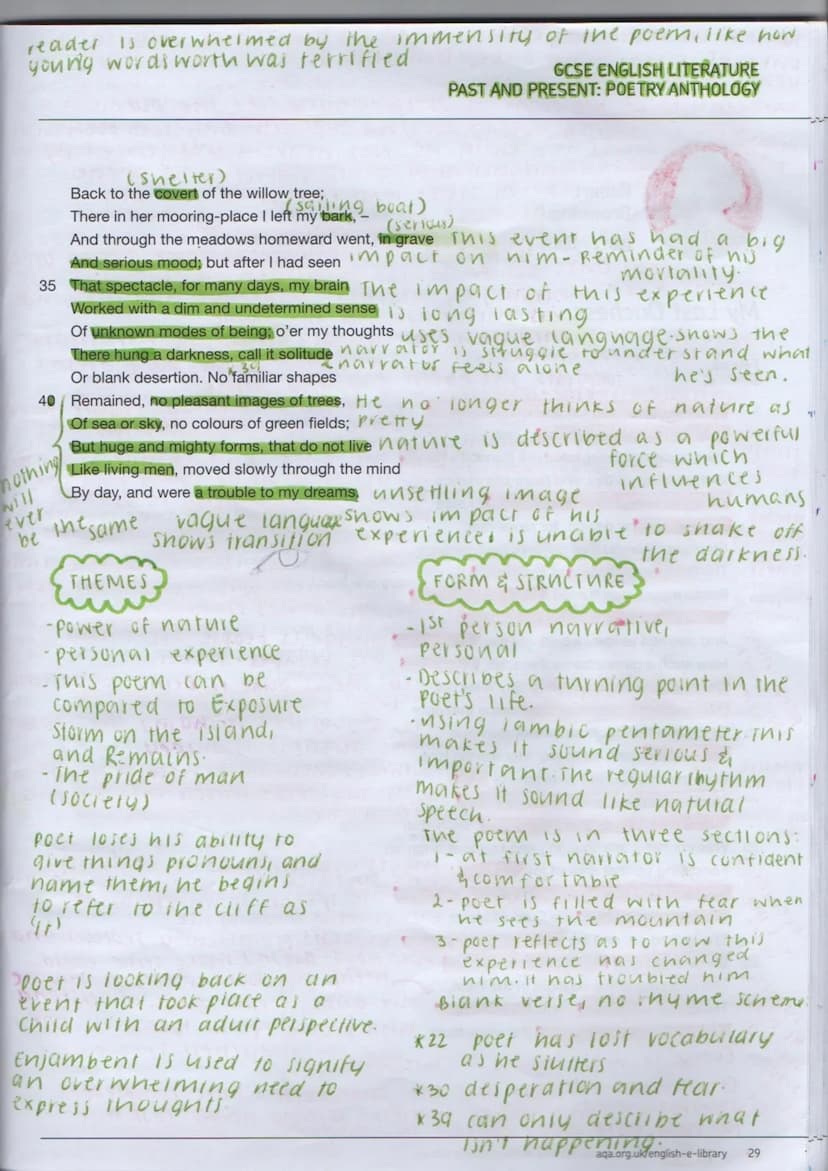 reader is overwhelmed by the immensity of the poem, like how
young wordsworth was terrified
GCSE ENGLISH LITERATURE
PAST AND PRESENT: POETRY ANTHOLOGY
(shelter)
Back to the covert of the willow tree;
(sailing boat)
There in her mooring-place I left my bark, –
(serious)
And through the meadows homeward went, in grave This event has had a big
And serious mood; but after I had seen impact on him - Reminder of his
mortality.
35 That spectacle, for many days, my brain The impact of this experience
Worked with a dim and undetermined sense is long lasting
Of unknown modes of being; o'er my thoughts uses vague language. shows the
There hung a darkness, call it solitude narrator is struggle to understand what
narrator feels alone he's seen.
Or blank desertion. No familiar shapes
*39
40 Remained, no pleasant images of trees, He no longer thinks of nature as
Of sea or sky, no colours of green fields; pretty
But huge and mighty forms, that do not live nature is described as a powerful
Like living men, moved slowly through the mind force which
influences
By day, and were a trouble to my dreams. unsettling image humans
nothing
will
ever
be the same
vague language shows impact of his
shows transition experiences is unable to shake off
the darkness.
THEMES
- power of nature
- personal experience
- This poem can be
compared to Exposure
Storm on the island,
and Remains.
- The pride of man
(society)
poet loses his ability to
give things pronouns, and
name them, he begins
to refer to the cliff as
'it'
poet is looking back on an
event that took place as a
child with an adult perspective.
Enjambent is used to signify
an overwhelming need to
express thoughts.
FORM & STRUCTURE
- 1st person narrative,
personal
- Describes a turning point in the
Poet's life.
- using iambic pentameter this
makes it sound serious &
important. The regular rhythm
makes it sound like natural
speech.
The poem is in three sections:
1 - at first narrator is confident
& comfortable
2 - poet is filled with fear when
he sees the mountain
3 - poet reflects as to how this
experience has changed
him. it has troubled him
Blank verse, no rhyme scheme
*22 poet has lost vocabulary
as he stutters
*30 desperation and fear.
*39 can only describe what
isn't happening.
aqa.org.uk/english-e-library 29